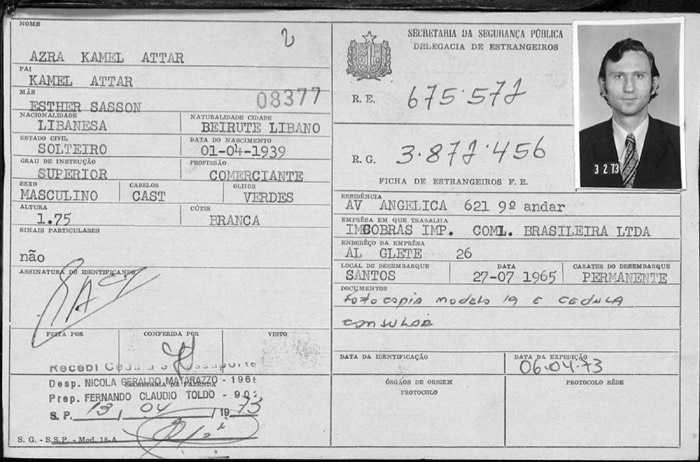 NOME
2
AZRA KAMEL ATTAR
PAI
KAMEL ATTAR
MÃE
ESTHER SASSON
08377
NACIONALIDADE
LIBANESA
NATURALIDADE CIDADE
BEIRUTE LIBANO
ESTADO CIVIL
SOLTEIRO
DATA DO NASCIMENTO
01-04-1939
GRAU DE INSTRUÇÃO
SUPERIOR
PROFISSÃO
COMERCIANTE
SEXO
MASCULINO
CABELOS
CAST
OLHOS
VERDES
ALTURA
1.75
CÚTIS
BRANCA
SINAIS PARTICULARES
não
ASSINATURA DO IDENTIFICANDO
FEITA POR
CONFERIDA POR
VISTO
Recebi
Desp. NICOLA GERALDO MATARAZZO - 1968
SECRETARIA DA FAZENDA
Prep. FERNANDO CLAUDIO TOLDO - 9
S. P. 13 / 04 / 1973
S. G. - S.S.P. - Mod. 18-A
SECRETARIA DA SEGURANÇA PÚBLICA
DELEGACIA DE ESTRANGEIROS
R. E. 675.572
R. G. 3.872.456
FICHA DE ESTRANGEIROS F. E.
3 2 73
RESIDÊNCIA
AV ANGELICA 621 9º andar
EMPRÊSA EM QUE TRABALHA
IMCOBRAS IMP. COML. BRASILEIRA LTDA
ENDERÊÇO DA EMPRÊSA
AL GLETE 26
LOCAL DE DESEMBARQUE
SANTOS
DATA
27-07 1965
CARATER DO DESEMBARQUE
PERMANENTE
DOCUMENTOS
fotocopia modelo 19 e cedula
consular
DATA DA IDENTIFICAÇÃO
DATA DA EXPEDIÇÃO
06.04.73
ÓRGÃOS DE ORIGEM
PROTOCOLO
PROTOCOLO RÊDE